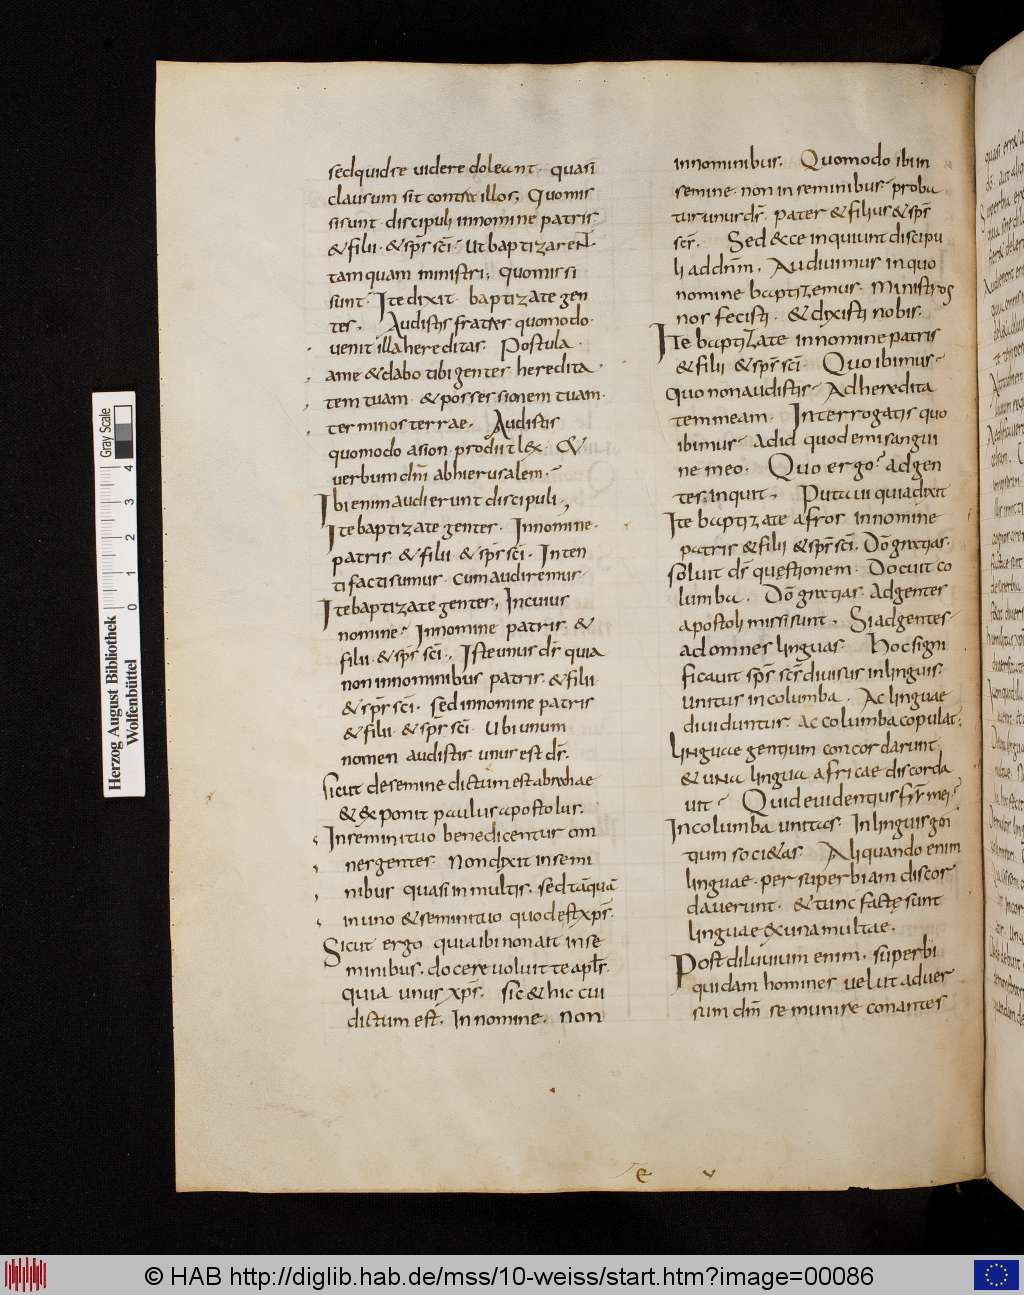 sedquidse uidere doleant· quasi
clausum sit contra illos; Quomis
sisunt· discipuli innomine patris
& filii· & sps̄ sc̄i· Ut baptizarent·
tamquam ministri; quomissi
sunt· Ite dixit· baptizate gen
tes· Audistis fratres quomodo·
uenit illa hereditas· Postula·
ame & dabo tibi gentes heredita·
tem tuam· & possessionem tuam·
terminos terrae· Audistis
quomodo asion· prodiit lex· &
uerbum dn̄i abhierusalem·
Ibi enim audierunt discipuli,
Ite baptizate gentes· Innomine·
patris· & filii & sps̄ sc̄i· Inten
ti facti sumus· cum audiremus·
Ite baptizate gentes, Incuius
nomine· Innomine patris· &
filii· & sps̄ sc̄i·, Iste unus ds̄ quia
non innominibus patris· & filii
& sps̄ sc̄i· sed innomine patris
& filii· & sps̄ sc̄i· Ubi unum
nomen audistis· unus est ds̄·
Sicut desemine dictum est abrahae
& exponit paulus apostolus·
Inseminituo benedicentur om
nes gentes· Non dixit insemi
nibus quasi in multis· sed tāquā
in uno & seminituo quod ēst xp̄s·
Sicut ergo quia ibi non ait inse
minibus· docere uoluit te apl̄s·
quia unus xp̄s· sic & hic cui
dictum est· In nomine· non
innominibus· Quomodo ibi in
semine· non in seminibus· proba
tur unus ds̄· pater & filius & sps̄
sc̄s· Sed & ecce inquiunt discipu
li ad dn̄m, Audiuimus inquo
nomine baptizemus· Ministros
nos fecisti· & dixisti nobis·
Ite baptizate innomine patris
& filii & sps̄ sc̄i· Quo ibimus·
Quo non audistis· Ad heredita
tem meam· Interrogatis quo
ibimus· Ad id quod emi sangui
ne meo· Quo ergo? ad gen
tes, inquit, Putaui quia dixit
Ite baptizate afros innomine
patris & filii & sps̄ sc̄i· Dō gratias·
soluit ds̄ quęstionem· Docuit co
lumba· Dō gratias· Ad gentes
apostoli missi sunt, Si ad gentes·
ad omnes linguas· Hoc signi
ficauit sps̄ sc̄s diuisus inlinguis·
unitus in columba· Ac linguae
diuiduntur· ac columba copulat·
Linguae gentium concordarunt
& una lingua africae discorda
uit· Quid euidentius fr̄s mei?
In columba unitas· In linguis gen
tium societas· Aliquando enim
linguae· per superbiam discor
dauerunt· & tunc factę sunt
linguae ex una multae·
Post diluuium enim· superbi
quidam homines uelut aduer
sum dn̄m se munire conantes
Herzog August Bibliothek
Wolfenbüttel
Gray Scale
0 1 2 3 4
© HAB http://diglib.hab.de/mss/10-weiss/start.htm?image=00086